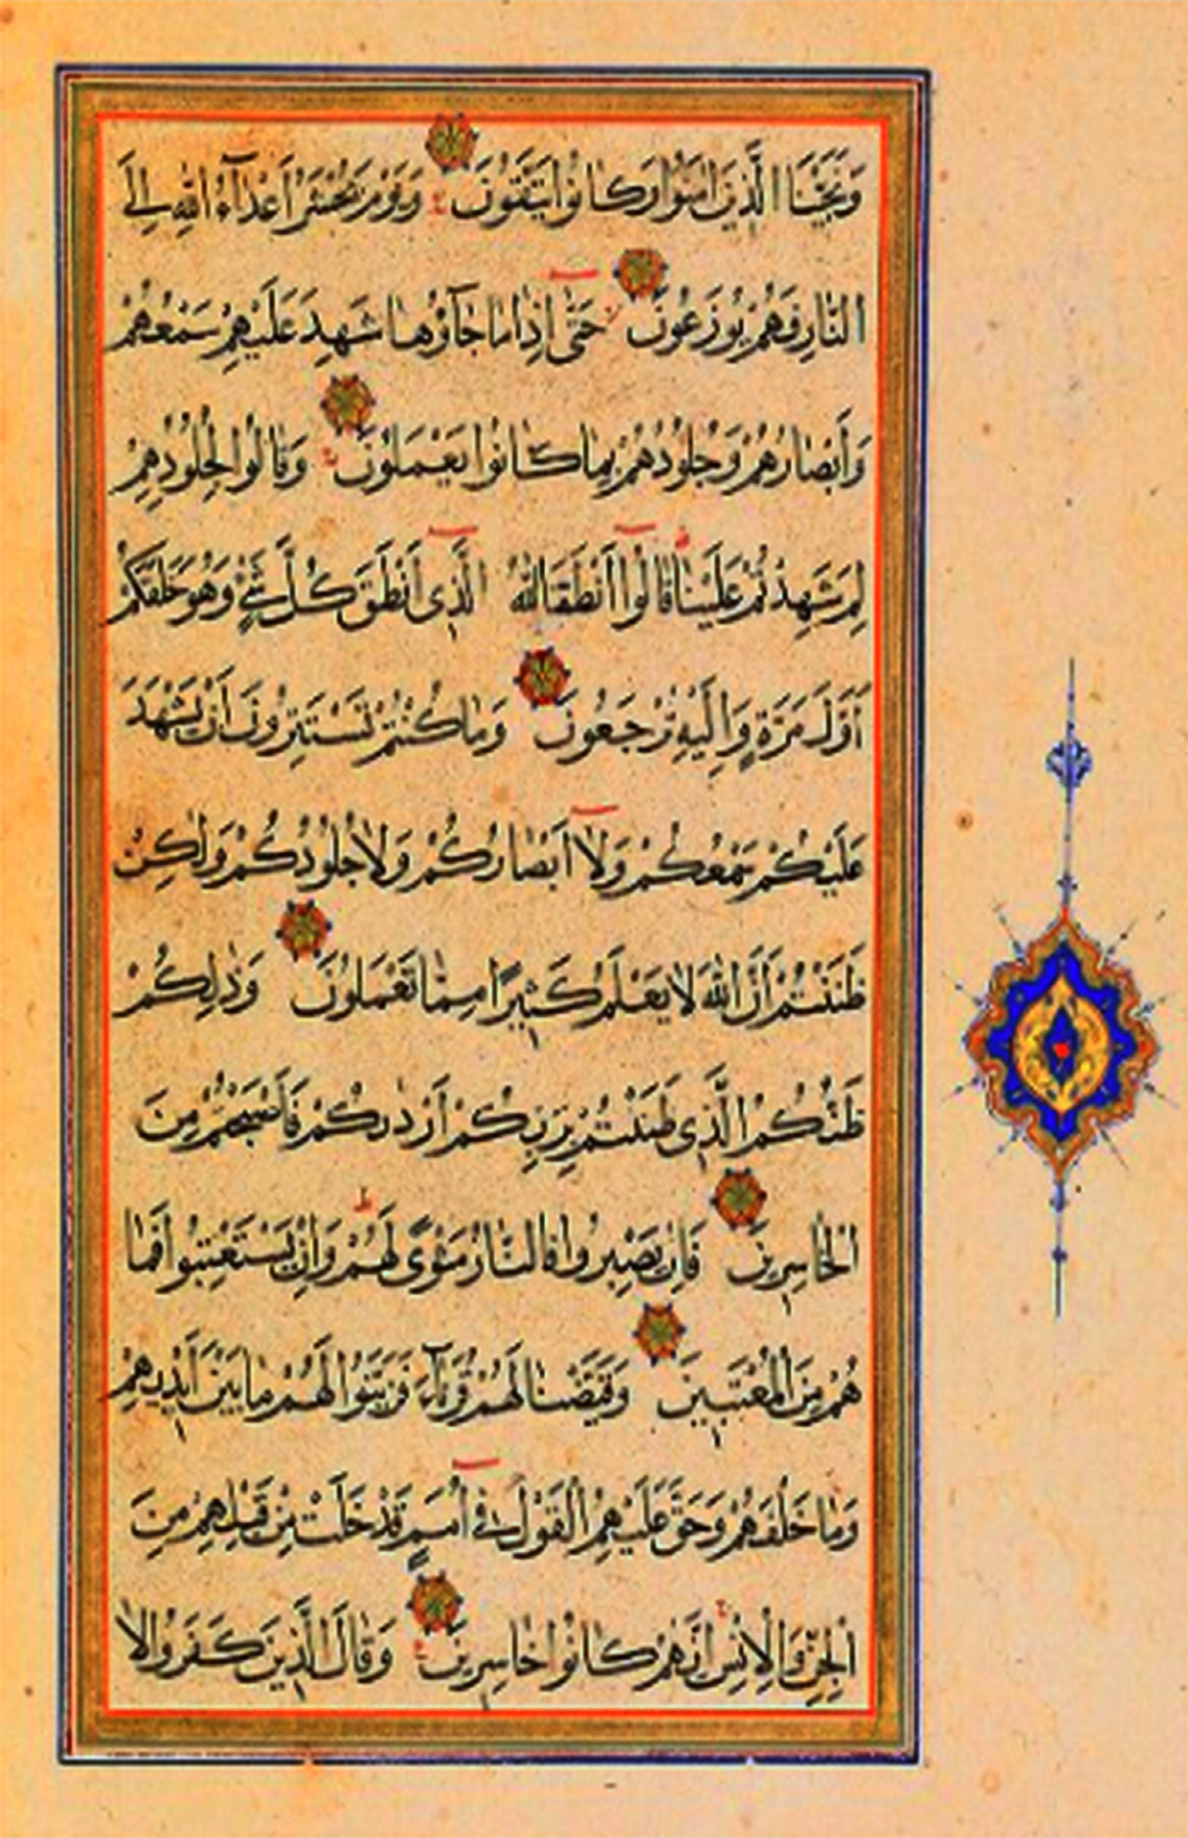 وَنَجَّيْنَا الَّذِينَ اٰمَنُوا وَكَانُوا يَتَّقُونَ وَيَوْمَ يُحْشَرُ اَعْدَآءُ اللّٰهِ اِلَى
النَّارِ فَهُمْ يُوزَعُونَ حَتّٰى اِذَا مَا جَآؤُهَا شَهِدَ عَلَيْهِمْ سَمْعُهُمْ
وَاَبْصَارُهُمْ وَجُلُودُهُمْ بِمَا كَانُوا يَعْمَلُونَ وَقَالُوا لِجُلُودِهِمْ
لِمَ شَهِدْتُمْ عَلَيْنَا قَالُوا اَنْطَقَنَا اللّٰهُ الَّذِى اَنْطَقَ كُلَّ شَىْءٍ وَهُوَ خَلَقَكُمْ
اَوَّلَ مَرَّةٍ وَاِلَيْهِ تُرْجَعُونَ وَمَا كُنْتُمْ تَسْتَتِرُونَ اَنْ يَشْهَدَ
عَلَيْكُمْ سَمْعُكُمْ وَلَا اَبْصَارُكُمْ وَلَا جُلُودُكُمْ وَلٰكِنْ
ظَنَنْتُمْ اَنَّ اللّٰهَ لَا يَعْلَمُ كَثِيرًا مِمَّا تَعْمَلُونَ وَذٰلِكُمْ
ظَنُّكُمُ الَّذِى ظَنَنْتُمْ بِرَبِّكُمْ اَرْدٰىكُمْ فَاَصْبَحْتُمْ مِنَ
الْخَاسِرِينَ فَاِنْ يَصْبِرُوا فَالنَّارُ مَثْوًى لَهُمْ وَاِنْ يَسْتَعْتِبُوا فَمَا
هُمْ مِنَ الْمُعْتَبِينَ وَقَيَّضْنَا لَهُمْ قُرَنَآءَ فَزَيَّنُوا لَهُمْ مَا بَيْنَ اَيْدِيهِمْ
وَمَا خَلْفَهُمْ وَحَقَّ عَلَيْهِمُ الْقَوْلُ فِى اُمَمٍ قَدْ خَلَتْ مِنْ قَبْلِهِمْ مِنَ
الْجِنِّ وَالْاِنْسِ اِنَّهُمْ كَانُوا خَاسِرِينَ وَقَالَ الَّذِينَ كَفَرُوا لَا